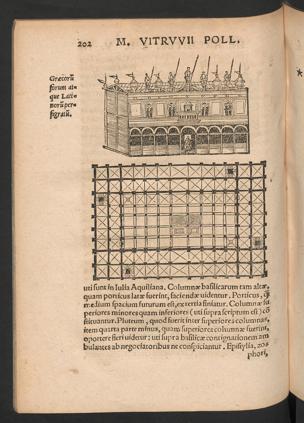 202 M. VITRVVII POLL.
Græcorū
forum at-
que Lati-
norū per-
figratū.
uti sunt in Iulia Aquiliana. Columnæ basilicarum tam altæ,
quam porticus latæ fuerint, faciendæ uidentur. Porticus, ꝗ̃
medium spacium futurum est, ex tertia finiatur. Columnæ su-
periores minores quam inferiores (uti supra scriptum est) cō
stituantur. Pluteum, quod fuerit inter superiores columnas,
item quarta parte minus, quam superiores columnæ fuerint,
oportere fieri uidetur: uti supra basilicæ contignationem am
bulantes ab negociatoribus ne conspiciantur. Epistylia, zoo
phori,